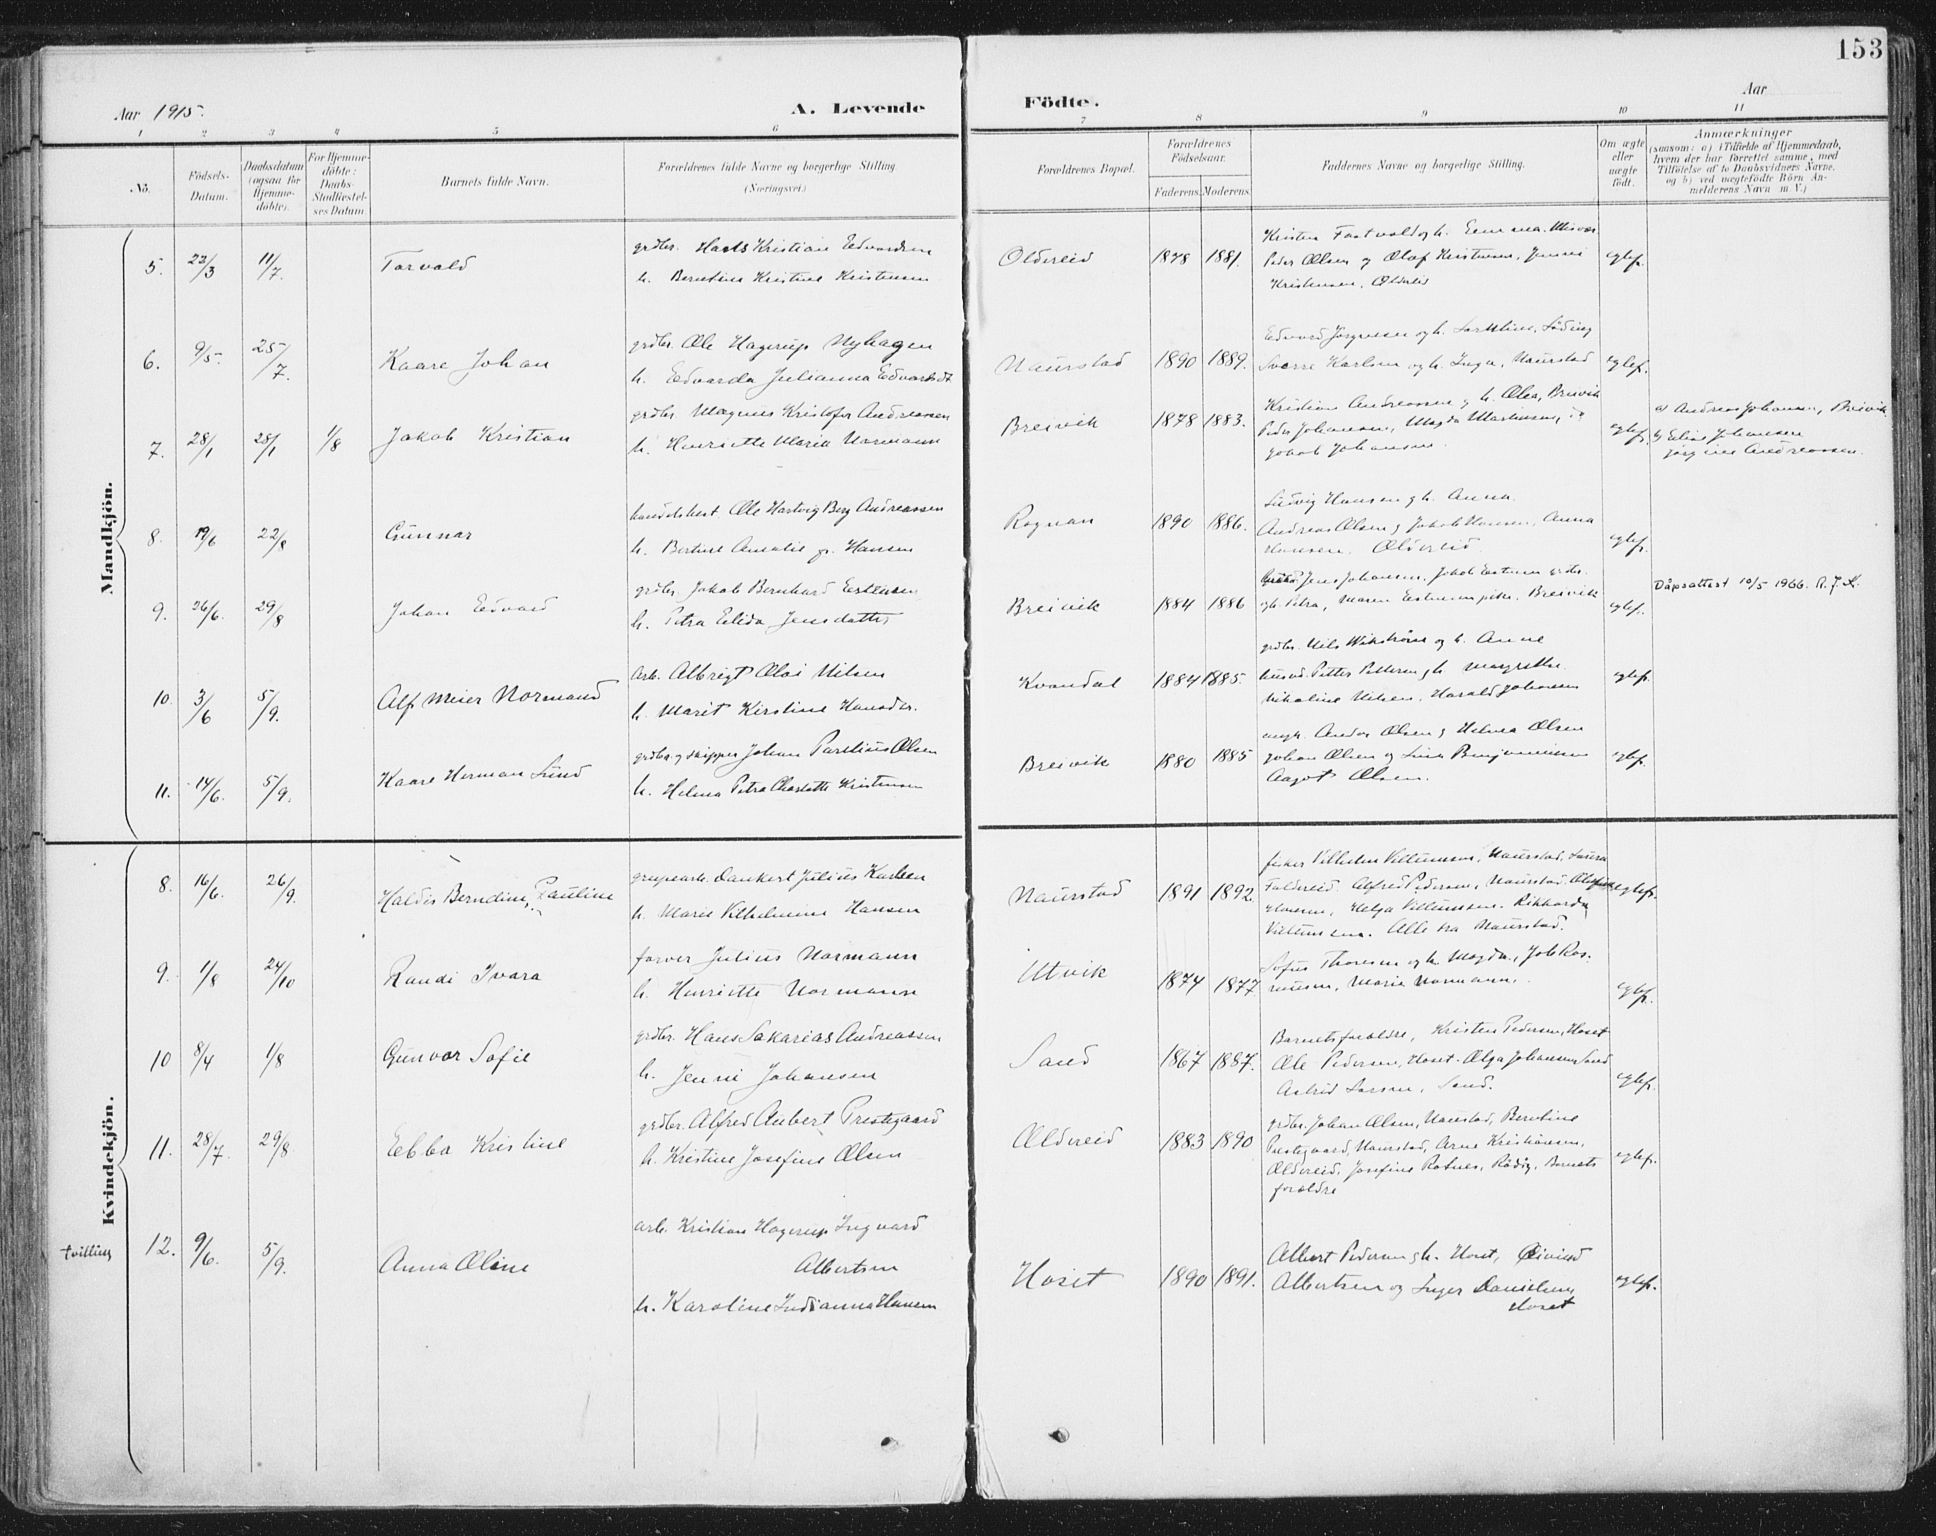 153
Aar 1915. A. Levende Födte. Aar
1 2 3 4 5 6 7 8 9 10 11
No.
Födsels-Datum.
Daabsdatum (ogsaa for Hjemme-döbte).
For Hjemme-döbte: Daabs-Stadfæstel-ses Datum
Barnets fulde Navn.
Forældrenes fulde Navne og borgerlige Stilling (Næringsvei.)
Forældrenes Bopæl.
Forældrenes Födselsaar.
Faderens. Moderens.
Faddernes Navne og borgerlige Stilling.
Om ægte eller uægte født.
Anmærkninger
(saasom: a) i Tilfælde af Hjemmedaab,
hvem der har forrettet samme, med
Tilføielse af to Daabsvidners Navne,
og b) ved uægtefødte Börn An-
melderens Navn m. V.)
Mandkjön.
5. 22/3 11/7 Torvald
grdbr. Hans Kristian Edvardsen
h. Berntine Kristine Kristensen
Oldereid 1878 1881.
Kristen Fastvold og h. Emma. Misvær
Peder Olsen og Olaf Kristensen, Jenni
Kristensen, Oldereid
egtef.
6. 9/5 25/7. Kaare Johan
grdbr. Ole Hagerup Nyhagen
h. Edvarda Julianna Edvardsdt
Naurstad 1890 1889.
Edvard Jørgensen og h.
Sverre Karlsen og h. Inga, Naurstad
egtef.
7. 28/1 28/1 1/8 Jakob Kristian
grdbr. Magnus Kristofer Andreassen
h. Henriette Maria Normann
Breivik 1878 1883.
Kristian Andreassen og h. Olea, Breivik
Peder Johansen, Magda Martinsen,
Jakob Johansen
egtef.
a) Andreas Johansen, Breivik
b) Elise Johansen
Jørgine Andreassen.
8. 19/6 22/8 Gunnar
handelsbest. Ole Hartvig Berg Andreassen
h. Bertine Amalie f. Hansen
Rognan 1890 1886.
Ludvig Hansen og h. Anna.
Andreas Olsen, Jakob Hansen, Anna
Hansen. Oldereid.
egtef.
9. 26/6. 29/8 Johan Edvard
grdbr. Jakob Bernhard Estensen
h. Petra Elida Jensdatter
Breivik 1884 1886
Jens Johansen, Jakob Estensen
og h. Petra, Maren Estensen pike. Breivik
egtef.
Dåpsattest 10/5 1966. R.J.K.
10. 3/6 5/9. Alf Meier Normand
arb. Albrigt Olai Nilsen
h. Marit Kirstine Hansdtr.
Kvandal 1884 1885.
grdbr. Nils Wikstrøm og h. Anne
husmd. Petter Pettersen og h. Margrethe.
Nikoline Nilsen. Harald Johansen
egtef.
11. 14/6. 5/9. Kaare Herman Lund
grdbr. og skipper Johan Parelius Olsen
h. Helma Petra Charlotte Kristensen
Breivik 1880 1885
ungk. Andor Olsen og Helma Olsen
Johan Olsen og Lina Benjaminsen
Aagot Olsen.
egtef.
Kvindekjön.
8. 16/6. 26/9. Haldis Berndine, Pauline
grupearb. Dankert Julius Karlsen
h. Marie Vilhelmine Hansen
Naurstad 1891 1892.
fisker Vilhelm Villumsen, Naurstad,
Foldereid. Alfred Pedersen, Naurstad.
Hansen, Helga Villumsen. Rikharda
Villumsen. Alle fra Naurstad.
egtef.
9. 1/8 24/10 Randi Ivara
farver Julius Normann
h. Henriette Normann
Utvik 1874 1877.
Sofus Thoresen og h. Magda, Job Ras-
mussen, Marie Normann.
egtef.
10 8/4 1/8 Gunvor Sofie
grdbr. Hans Sakarias Andreassen
h. Jenni Johansen
Sand 1867 1887.
Barnets forældre, Kristen Pedersen, Hoset
Ole Pedersen, Hoset. Olga Johansen, Sand
Astrid Larsen, Sand.
egtef.
11. 28/7. 29/8 Ebba Kristine
grdbr. Alfred Aubert Prestegaard
h. Kristine Josefine Olsen
Oldereid 1883 1890
grdbr. Johan Olsen, Naurstad, Berntine
Prestegaard, Naurstad, Arne Kristiansen,
Oldereid, Josefine Rotnes, Røding. Barnets
forældre
egtef.
tvilling 12. 9/6. 5/9. Anna Oline
arb. Kristian Hagerup Ingvard
Albertsen
h. Karoline Indianna Hansen
Hoset 1890 1891.
Albert Pedersen og h. Hoset, Øivind
Albertsen og Inger Danielsen,
Hoset
egtef.